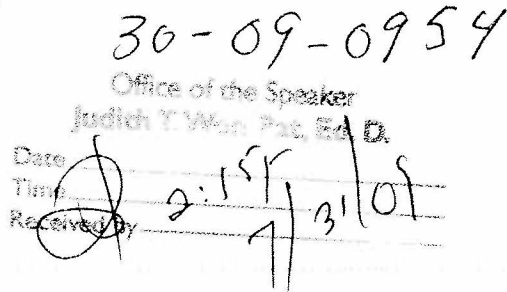 30-09-0954
Office of the Speaker
Judith T. Won Pat, Ed. D.
Date
Time 2:15
Received by